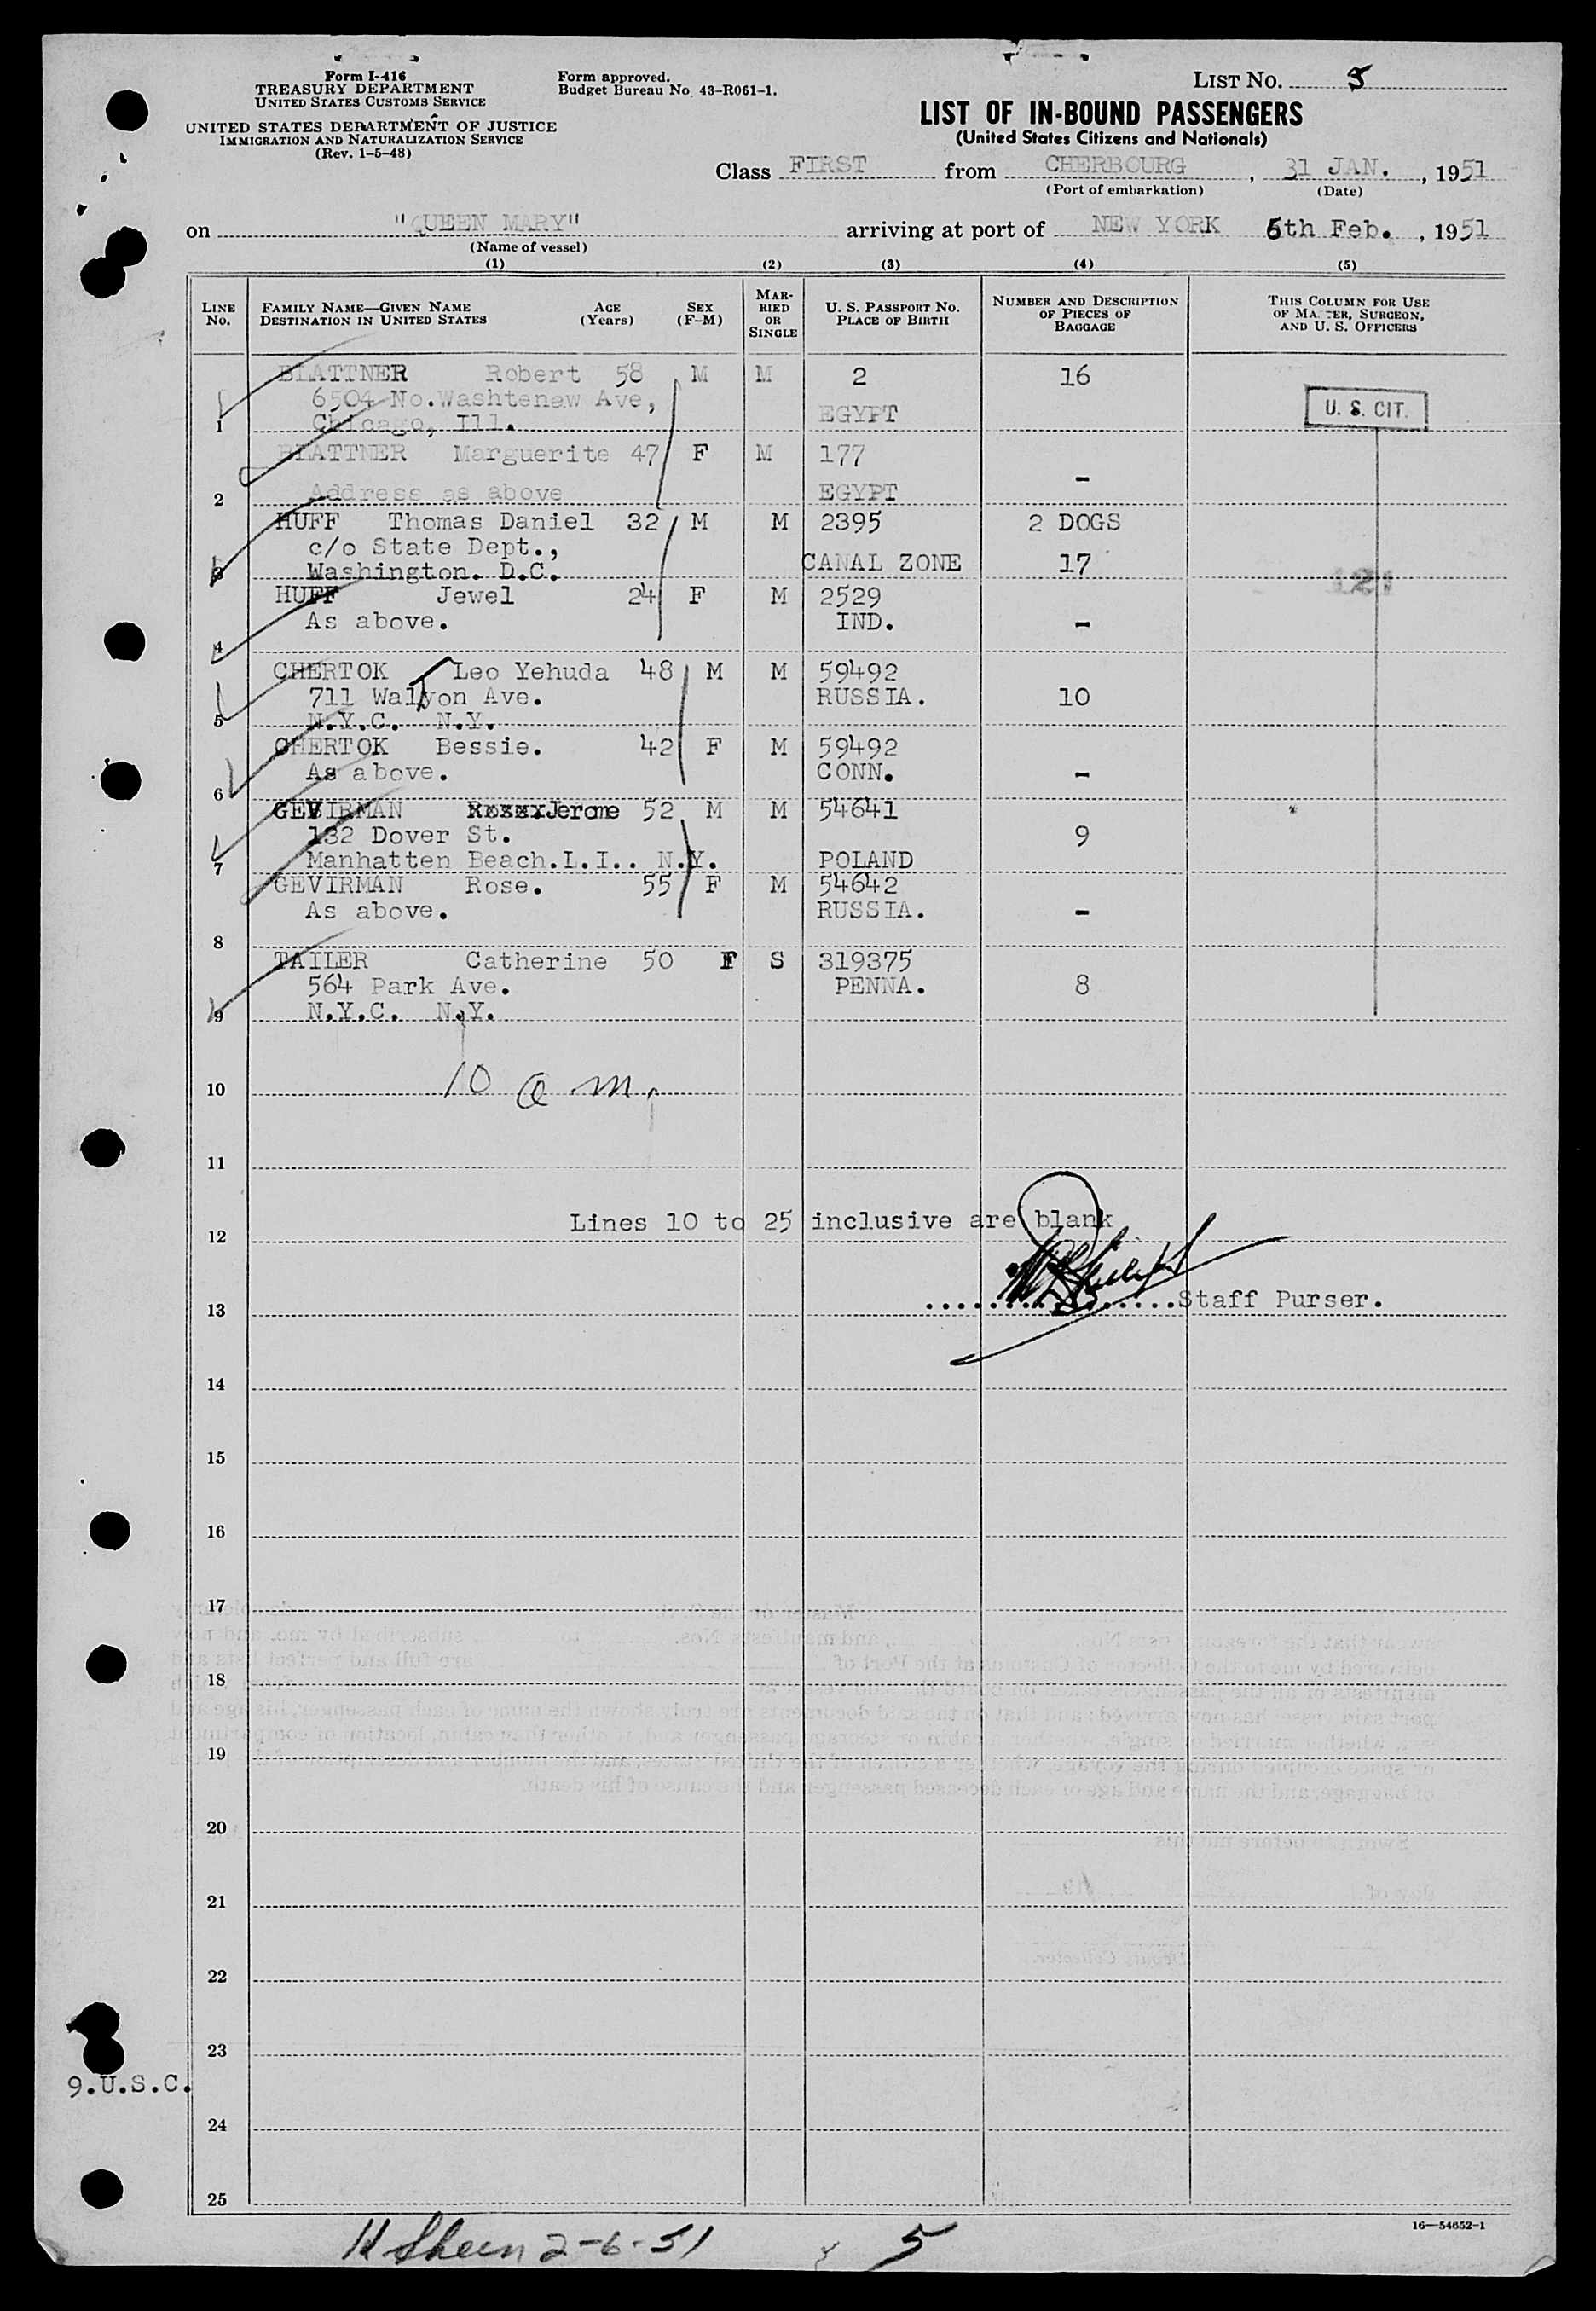 Form I-416
TREASURY DEPARTMENT
UNITED STATES CUSTOMS SERVICE
UNITED STATES DEPARTMENT OF JUSTICE
IMMIGRATION AND NATURALIZATION SERVICE
(Rev. 1-5-48)
Form approved.
Budget Bureau No. 43-R061-1.
LIST NO. 5
LIST OF IN-BOUND PASSENGERS
(United States Citizens and Nationals)
Class FIRST from CHERBOURG, 31 JAN., 1951
(Port of embarkation) (Date)
on "QUEEN MARY" arriving at port of NEW YORK 6th Feb., 1951
(Name of vessel)
(1) (2) (3) (4) (5)
LINE NO. FAMILY NAME—GIVEN NAME DESTINATION IN UNITED STATES AGE (Years) SEX (F-M) MARRIED OR SINGLE U. S. PASSPORT NO. PLACE OF BIRTH NUMBER AND DESCRIPTION OF PIECES OF BAGGAGE THIS COLUMN FOR USE OF MASTER, SURGEON, AND U. S. OFFICERS
BLATTNER Robert 58 M M 2 16
6504 No.Washtenaw Ave,
1 Chicago, Ill. EGYPT U. S. CIT.
BLATTNER Marguerite 47 F M 177 -
2 Address as above EGYPT
HUFF Thomas Daniel 32 M M 2395 2 DOGS
c/o State Dept.,
3 Washington. D.C. CANAL ZONE 17
HUFF Jewel 24 F M 2529
As above. IND. -
4
CHERTOK Leo Yehuda 48 M M 59492
711 Walton Ave. RUSSIA. 10
5 N.Y.C. N.Y.
CHERTOK Bessie. 42 F M 59492
As above. CONN. -
6
GEVIRMAN Jerome 52 M M 54641
132 Dover St. 9
7 Manhatten Beach.L.I.. N.Y. POLAND
GEVIRMAN Rose. 55 F M 54642
As above. RUSSIA. -
8
TAILER Catherine 50 F S 319375
564 Park Ave. PENNA. 8
9 N.Y.C. N.Y.
10 10 a m.
11
Lines 10 to 25 inclusive are blank
12
13 ................Staff Purser.
14
15
16
17
18
19
20
21
22
23
9.U.S.C.
24
25
16—54652-1
H Sheen 2-6-51 5